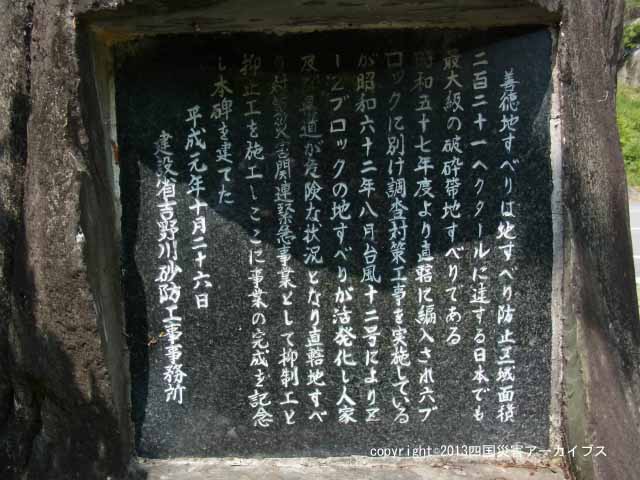 善徳地すべりは地すべり防止区域面積
二百二十一ヘクタールに達する日本でも
最大級の破砕帯地すべりである
昭和五十七年度より直轄に編入され六ブ
ロックに別け調査対策工事を実施している
が昭和六十二年八月台風十二号により
ー2ブロックの地すべりが活発化し人家
及び県道が危険な状況となり直轄地すべ
り対策災害関連緊急事業として抑制工と
抑止工を施工しここに事業の完成を記念
し本碑を建てた
平成元年十月二十六日
建設省吉野川砂防工事事務所
copyright©2013四国災害アーカイブス